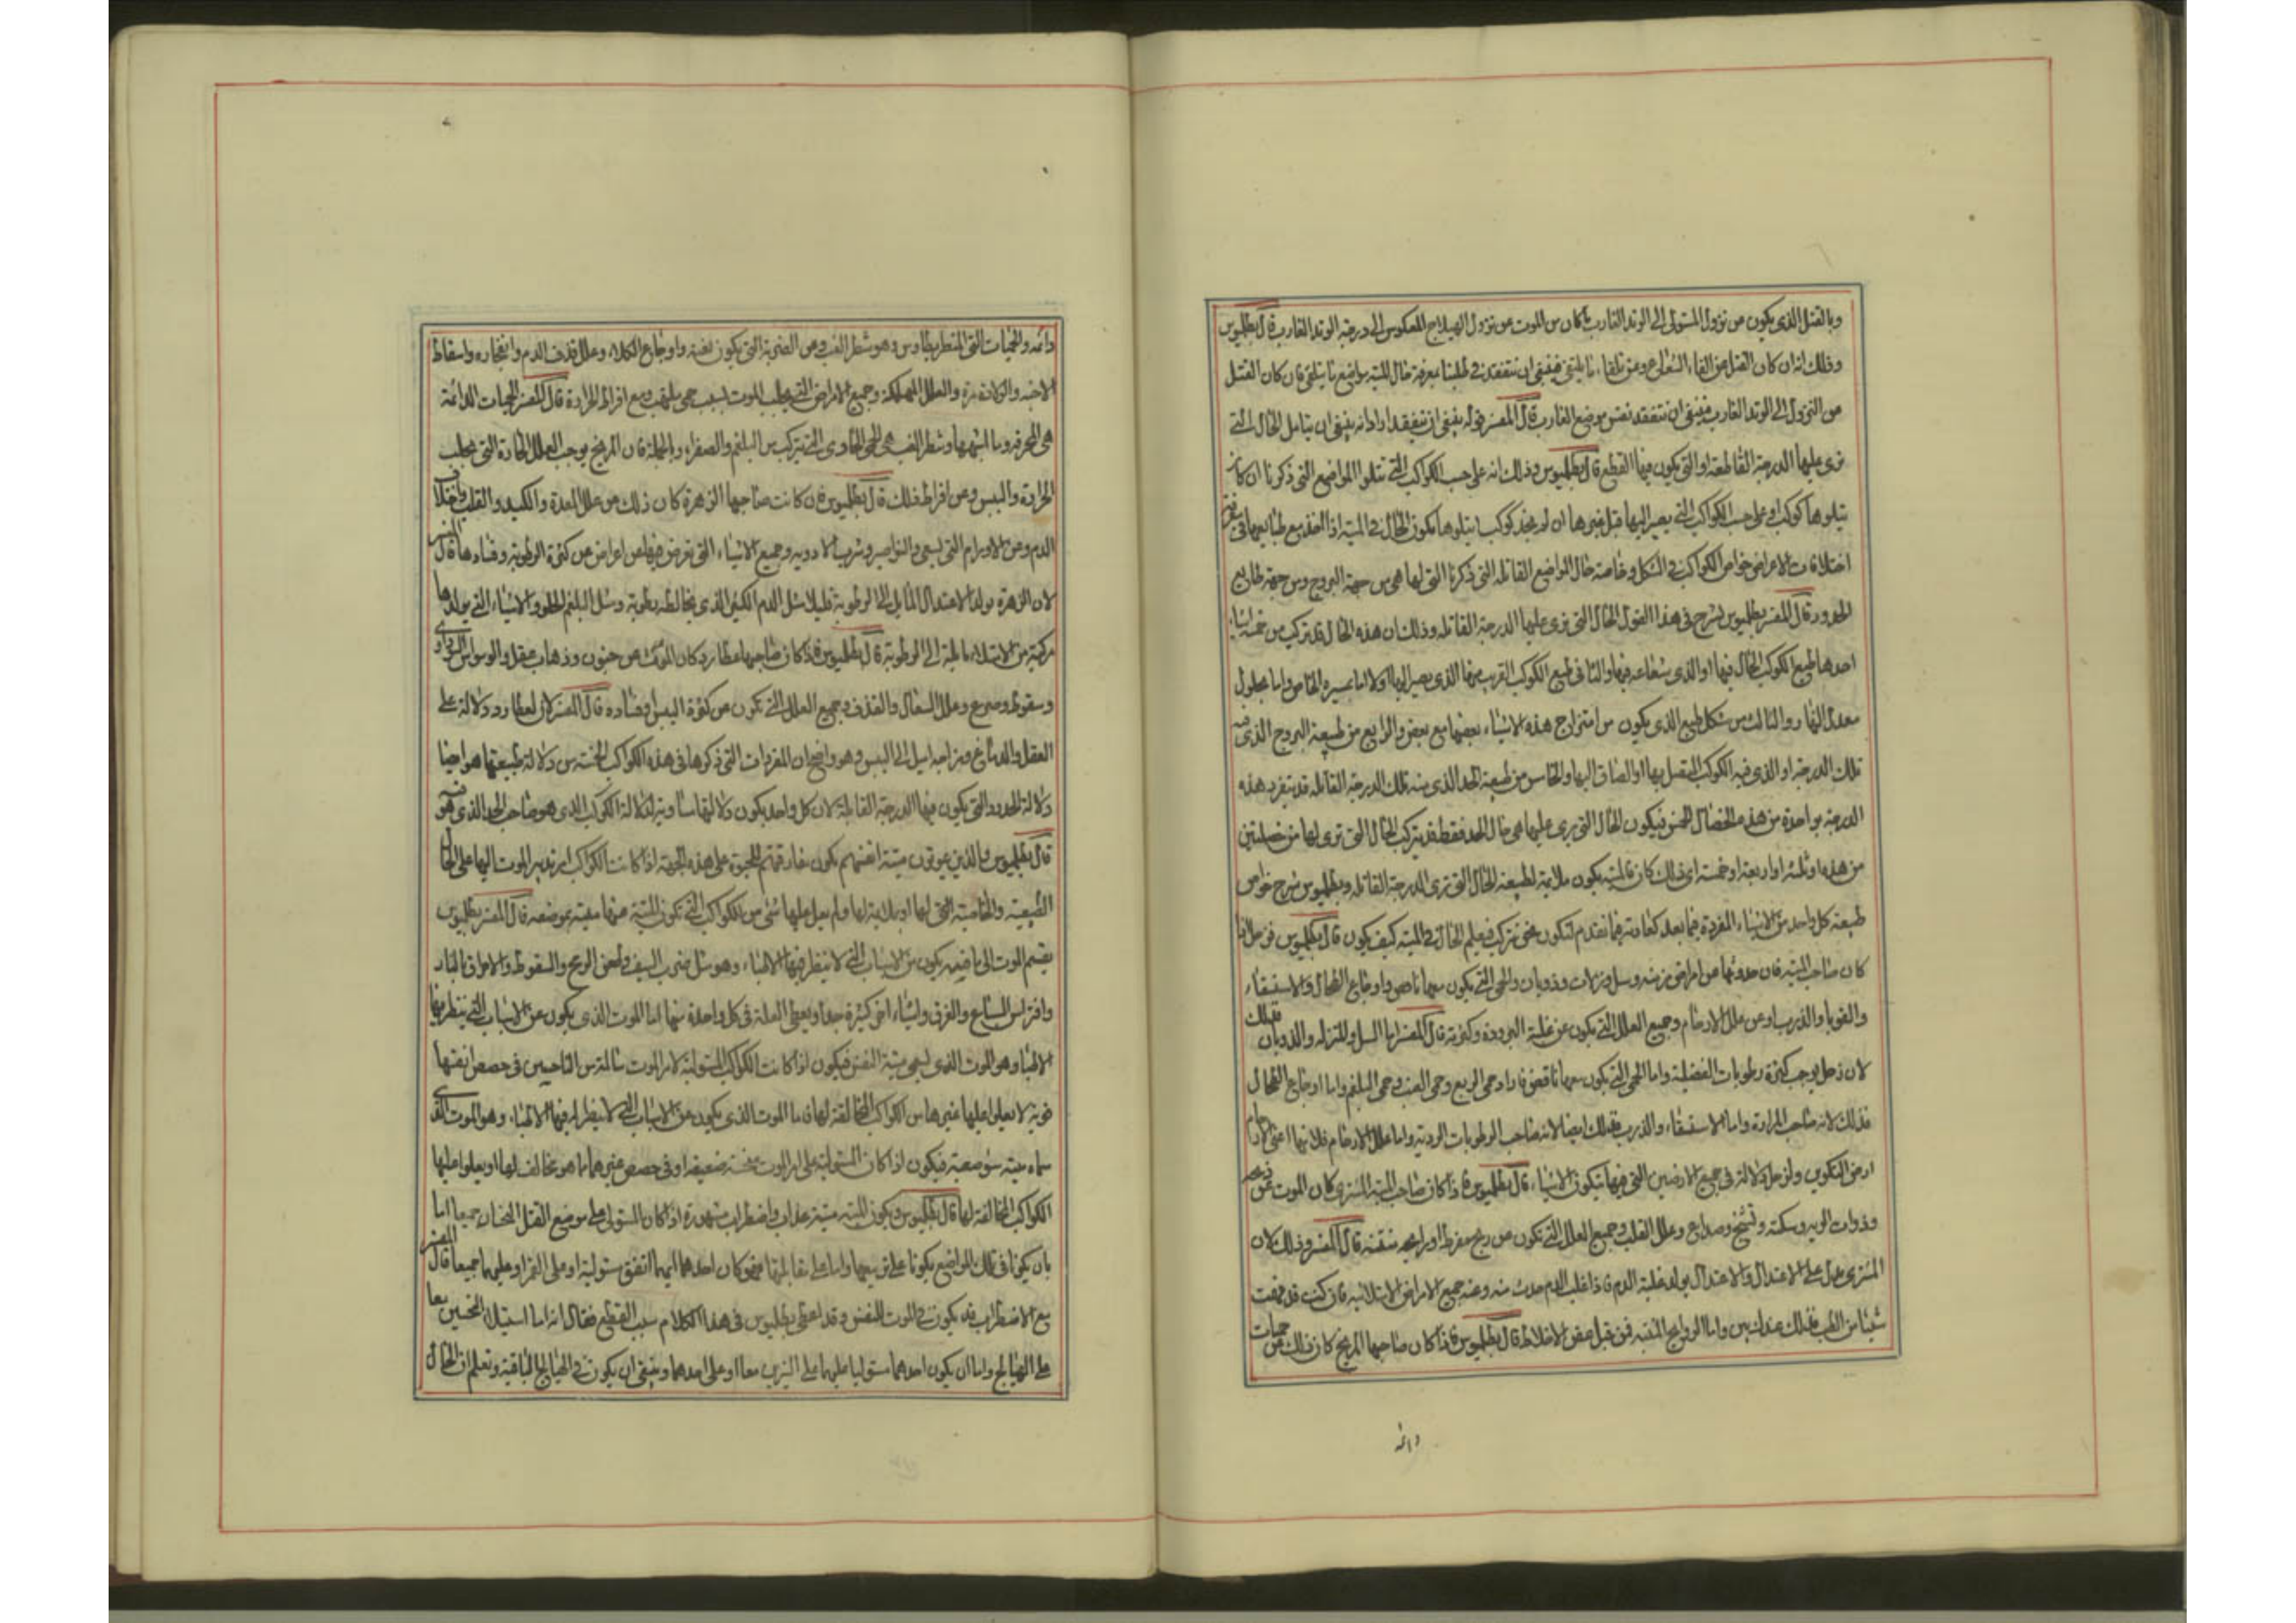 وبالقتل الذي يكون من نزول المستولى الى الوتد الغارب ما كان من الموت من نزول الهيلاج المعكوس الى درجة الوتد الغارب قال بطلميوس
وذلك انه ان كان القتل من القاء الشعاع ومن تلقاء ما يلتقى فينبغى ان نتفقد في طلبنا معرفة حال الميتة مواضع ما يتلقى فان كان القتل
من النزول الى الوتد الغارب فينبغى ان نتفقد نفس موضع الغارب قال المفسر قوله ينبغى ان نتفقد اراد انه ينبغى ان نتامل الحال التي
نرى عليها الدرجة القاطعة او التي يكون فيها القطع قال بطلميوس وذلك انه على حسب الكواكب التي تتلو المواضع التي ذكرنا ان كان
يتلوها كوكب او على حسب الكواكب التي يصير اليها قبل غيرها ان لم نجد كوكبا يتلوها يكون الحال في الميتة اذا اخذ مع طبايعها في
اختلافات الاعراض خواص الكواكب في الشكل وخاصة حال المواضع القاتلة التي ذكرنا التي لها هي من جهة البروج ومن جهة طبايع
الحدود قال المفسر بطلميوس يشرح في هذا القول الحال التي نرى عليها الدرجة القاتلة وذلك ان هذه الحال قد تركب من خمسة اشياء
احدها طبع الكوكب الحال فيها او الذي شعاعه فيها والثاني طبع الكوكب القريب منها الذي يصير اليها اولا اما بمسيره الخاص واما بحلول
معدل النهار والثالث من شكل طبع الذي يكون من امتزاج هذه الاشياء بعضها مع بعض والرابع من طبيعة البروج الذي فيه
تلك الدرجة او الذي فيه الكوكب المتصل بها او الصاق اليها والخامس من طبيعة الحد الذي منه تلك الدرجة القاتلة قد يتفرد هذه
الدرجة بواحدة من هذه الخصال الخمس فيكون الحال التي نرى عليها هي حال الحد فقط وقد يتركب الحال التي نرى لها من خصلتين
من هذه او ثلثة او اربعة او خمسة اي ذلك كان فالميتة يكون ملايمة لطبيعة الحال التي ترى الدرجة القاتلة وبطلميوس شرح خواص
طبيعة كل واحد من الاشياء المفردة فيما بعد كعادته فيما تقدم لنكون نحن نركب فيعلم الحال في الميتة كيف يكون قال بطلميوس فزحل اذا
كان صاحب الميتة فان حدوثها من امراض مزمنة وسل ونزلات وذوبان والحمى التي يكون معها نافض واوجاع الطحال والاستسقاء
والقوبا والذرب او عن علل الارحام وجميع العلل التي يكون عن غلبة البرودة وكثرته قال المفسر اما السل والنزلة والذوبان فذلك
لان زحل يوجب كثرة رطوبات الفضلية واما الحمى التي يكون معها نافض فاراد حمى الربع وحمى الغب وحمى البلغم واما اوجاع الطحال
فذلك لانه صاحب المرارة واما الاستسقاء والذرب فذلك ايضا لانه صاحب الرطوبات الردية واما علل الارحام فلانها اعنى الارحام
ارض التكوين ولزحل دلالة في جميع الارضين التي فيها تكون الاشياء قال بطلميوس فاذا كان صاحب الميتة المشترى كان الموت عن ذبحه
وذوات الريه وسكتة وتشنج وصداع وعلل القلب وجميع العلل التي تكون من ريح مفرط او رايحه منتنة قال المفسر وذلك لان
المشترى يدل على الاعتدال والاعتدال يولد غلبة الدم فاذا غلب الدم حدث منه وعنه جميع الامراض الامتلائيه فان كنت قد فهمت
شيئا من الطب فذلك عندك بين واما الروايح المنتنه فمن قبل عفن الاخلاط قال بطلميوس فاذا كان صاحبها المريخ كان ذلك عن حميات
دائمه
دائمه والحميات التي وهو شطر الغب ومن الضربة التي يكون بغتة واوجاع الكلا وعلل قذف الدم وانفجاره واسقاط
الاجنه والولادة مرة والعلل المهلكة وجميع الامراض التي يجلب الموت بسبب حمى يلتهب ومع افراط الحرارة قال المفسر الحميات الدائمة
هي المحرقه وما اشبهها وشطر الغب هي الحمى التي يتركب من البلغم والصفرا وبالجملة فان المريخ يوجب العلل الحادة التي يجلب
الحرارة واليبس ومن افراط ذلك قال بطلميوس فان كانت صاحبها الزهرة كان ذلك من علل المعدة والكبد والقلب واختلاف
الدم ومن الاورام التي تسعى والنواصير وشرب الادويه وجميع الاشياء التي تعرض فيها من اعراض من كثرة الرطوبة وفسادها قال المفسر
لان الزهرة يولد الاعتدال المايل الى الرطوبة قليلا مثل الدم الكثير الذي يخالطه رطوبة ومثل البلغم الحلو والاشياء التي يولدها
مركبة من الامتلاء مايلة الى الرطوبة قال بطلميوس فاذا كان صاحبها عطارد كان الموت من جنون وذهاب عقل والوسواس السوداوى
وسقوط وصرع وعلل السعال والقذف وجميع العلل التي تكون من كثرة اليبس وفساده قال المفسر لان لعطارد دلالة على
العقل والدماغ ومزاجه اميل الى اليبس وهو واضح ان المفردات التي ذكرها في هذه الكواكب الخمسة من دلالة طبيعتها هو احيانا
دلالة الحدود التي يكون فيها الدرجة القاتلة لان كل واحد يكون دلالتها مساوية لدلالة الكوكب الذي هو صاحب الحد الذي هو فيه
قال بطلميوس والذين يموتون ميتة انفسهم تكون مفارقتهم للحيوة على هذه الجهة اذا كانت الكواكب امر تدبير الموت اليها على الحال
الطبيعية والخاصية التي لها او ملايمة لها ولم يعل عليها شئ من الكواكب التي تكون الميتة عنها ميتة بموضعه قال المفسر بطلميوس
يقسم الموت الى ما ضربه يكون من الاسباب التي لا ينظر فيها الاطباء وهو مثل ضرب السيف وطعن الرمح والسقوط والاحراق بالنار
وافتراس السباع والغرق واشياء اخر كثيرة جدا ويعطى العلة في كل واحدة منهما اما الموت الذي يكون عن الاسباب التي ينظر فيها
الاطباء وهو الموت الذي يسمى ميتة النفس فيكون اذا كانت الكواكب المستولية لامر الموت سالمة من الناحسين في حصص انفسها
قوية لا يعلوا عليها غيرها من الكواكب المخالفة لها فاما الموت الذي يكون عن الاسباب التي لا ينظر فيها الاطباء وهو الموت الذي
سماه ميتة سو صعبة فيكون اذا كان المستولية على امر الموت منحسة ضعيفة او في حصص غيرها مما هو مخالف لها او يعلوا عليها
الكواكب المخالفة لها قال بطلميوس ويكون الميتة ميتة عذاب واضطراب مشهورة اذا كان المستولى على موضع القتل النحسان جميعا اما
بان يكونا في تلك المواضع يكونا على تربيعها واما على مقابلتها فهو كان احدهما ايهما اتفق مستولية او على القمر او عليهما جميعا قال المفسر
مع الاضطراب قد يكون في الموت للنفس وقد اعطى بطلميوس في هذا الكلام سبب القطع فقال انه اما استيلاء النحسين معا
على الهيالج واما ان يكون احدهما مستوليا عليهما على النيرين معا او على احدهما وينبغى ان يكون في الهيالج الباقية وتعلم ان الحال